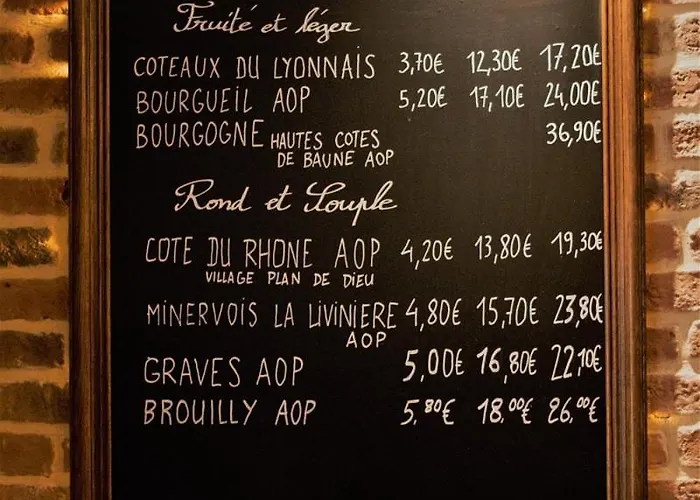 Fruité et léger
COTEAUX DU LYONNAIS 3,70€ 12,30€ 17,20€
BOURGUEIL AOP 5,20€ 17,10€ 24,00€
BOURGOGNE HAUTES COTES 36,90€
DE BAUNE AOP
Rond et Souple
COTE DU RHONE AOP 4,20€ 13,80€ 19,30€
VILLAGE PLAN DE DIEU
MINERVOIS LA LIVINIERE 4,80€ 15,70€ 23,80€
AOP
GRAVES AOP 5,00€ 16,80€ 22,10€
BROUILLY AOP 5,80€ 18,00€ 26,00€